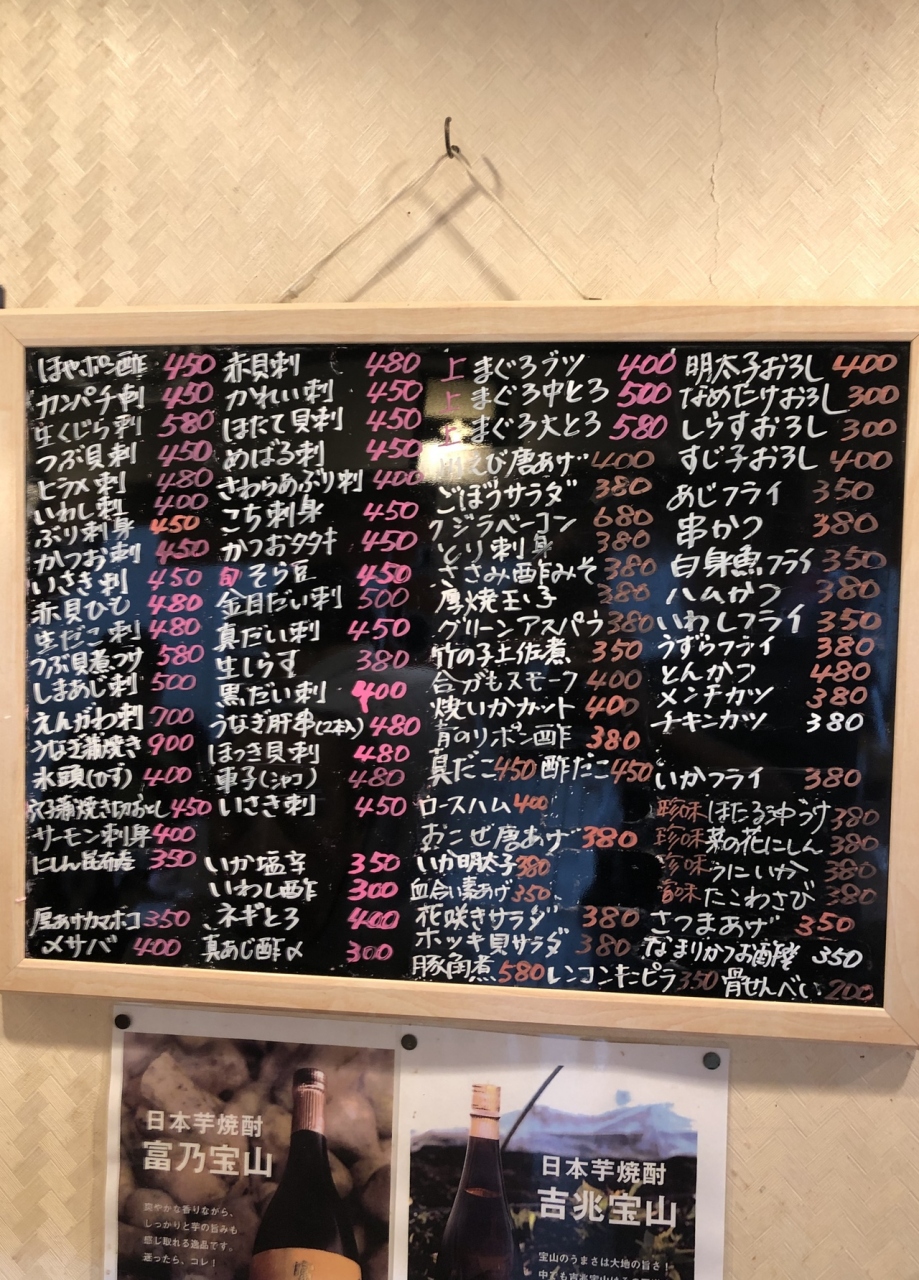 ほやポン酢 450
カンパチ刺 450
生くじら刺 580
つぶ貝刺 450
ヒラメ刺 480
いわし刺 400
ぶり刺身 450
かつお刺 450
いさき刺 450
赤貝ひも 480
生だこ刺 480
つぶ貝煮つけ 580
しまあじ刺 500
えんがわ刺 700
うなぎ蒲焼き 900
氷頭(ひず) 400
穴子蒲焼き切りおとし 450
サーモン刺身 400
にしん昆布巻 350
厚あげカマボコ 350
〆サバ 400
赤貝刺 480
かれい刺 450
ほたて貝刺 450
めばる刺 450
さわらあぶり刺 400
こち刺身 450
かつおタタキ 450
旬 そら豆 450
金目だい刺 500
真だい刺 450
生しらす 380
黒だい刺 400
うなぎ肝串(2本入) 480
ほっき貝刺 480
車子(シャコ) 480
いさき刺 450
いか塩辛 350
いわし酢 300
ネギとろ 400
真あじ酢〆 300
上 まぐろブツ 400
上 まぐろ中とろ 500
上 まぐろ大とろ 580
えび唐あげ 400
ごぼうサラダ 380
クジラベーコン 680
とり刺身 380
ささみ酢みそ 380
厚焼玉子 380
グリーンアスパラ 380
竹の子土佐煮 350
合がもスモーク 400
焼いかカット 400
青のりポン酢 380
真だこ 450 酢だこ 450
ロースハム 400
おこぜ唐あげ 380
いか明太子 380
血合い素あげ 350
花咲きサラダ 380
ホッキ貝サラダ 380
豚角煮 580 レンコンキンピラ 350
明太子おろし 400
なめたけおろし 300
しらすおろし 300
すじ子おろし 400
あじフライ 350
串かつ 380
白身魚フライ 350
ハムかつ 380
いわしフライ 350
うずらフライ 380
とんかつ 480
メンチカツ 380
チキンカツ 380
いかフライ 380
珍味 ほたる沖うけ 380
珍味 菜の花にしん 380
珍味 うにいか 380
珍味 たこわさび 380
さつまあげ 350
なまりかつお 350
骨せんべい 200
日本芋焼酎
富乃宝山
爽やかな香りながら、
しっかりと芋の旨みも
感じ取れる逸品です。
迷ったら、コレ！
日本芋焼酎
吉兆宝山
宝山のうまさは大地の旨さ！